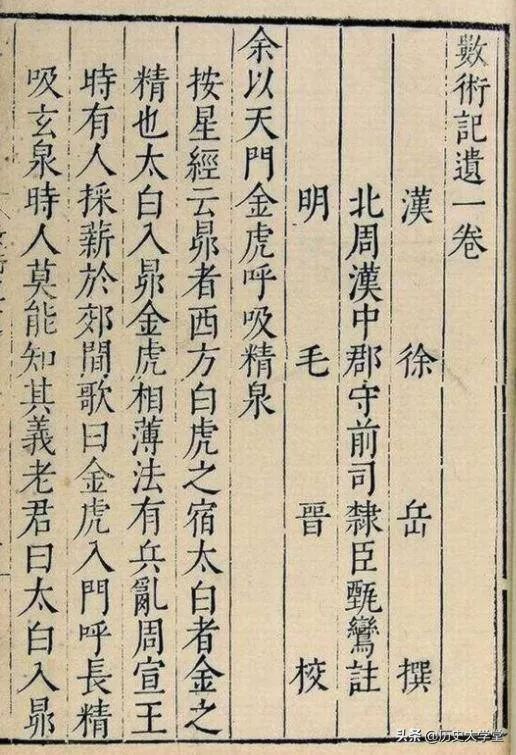 數術記遺一卷
漢徐岳撰
北周漢中郡守前司隸臣甄鸞註
明毛晉校
余以天門金虎呼吸精泉
按星經云昴者西方白虎之宿太白者金之
精也太白入昴金虎相薄法有兵亂周宣王
時有人採薪於郊間歌曰金虎入門呼長精
吸玄泉時人莫能知其義老君曰太白入昴
头条@历史大学堂